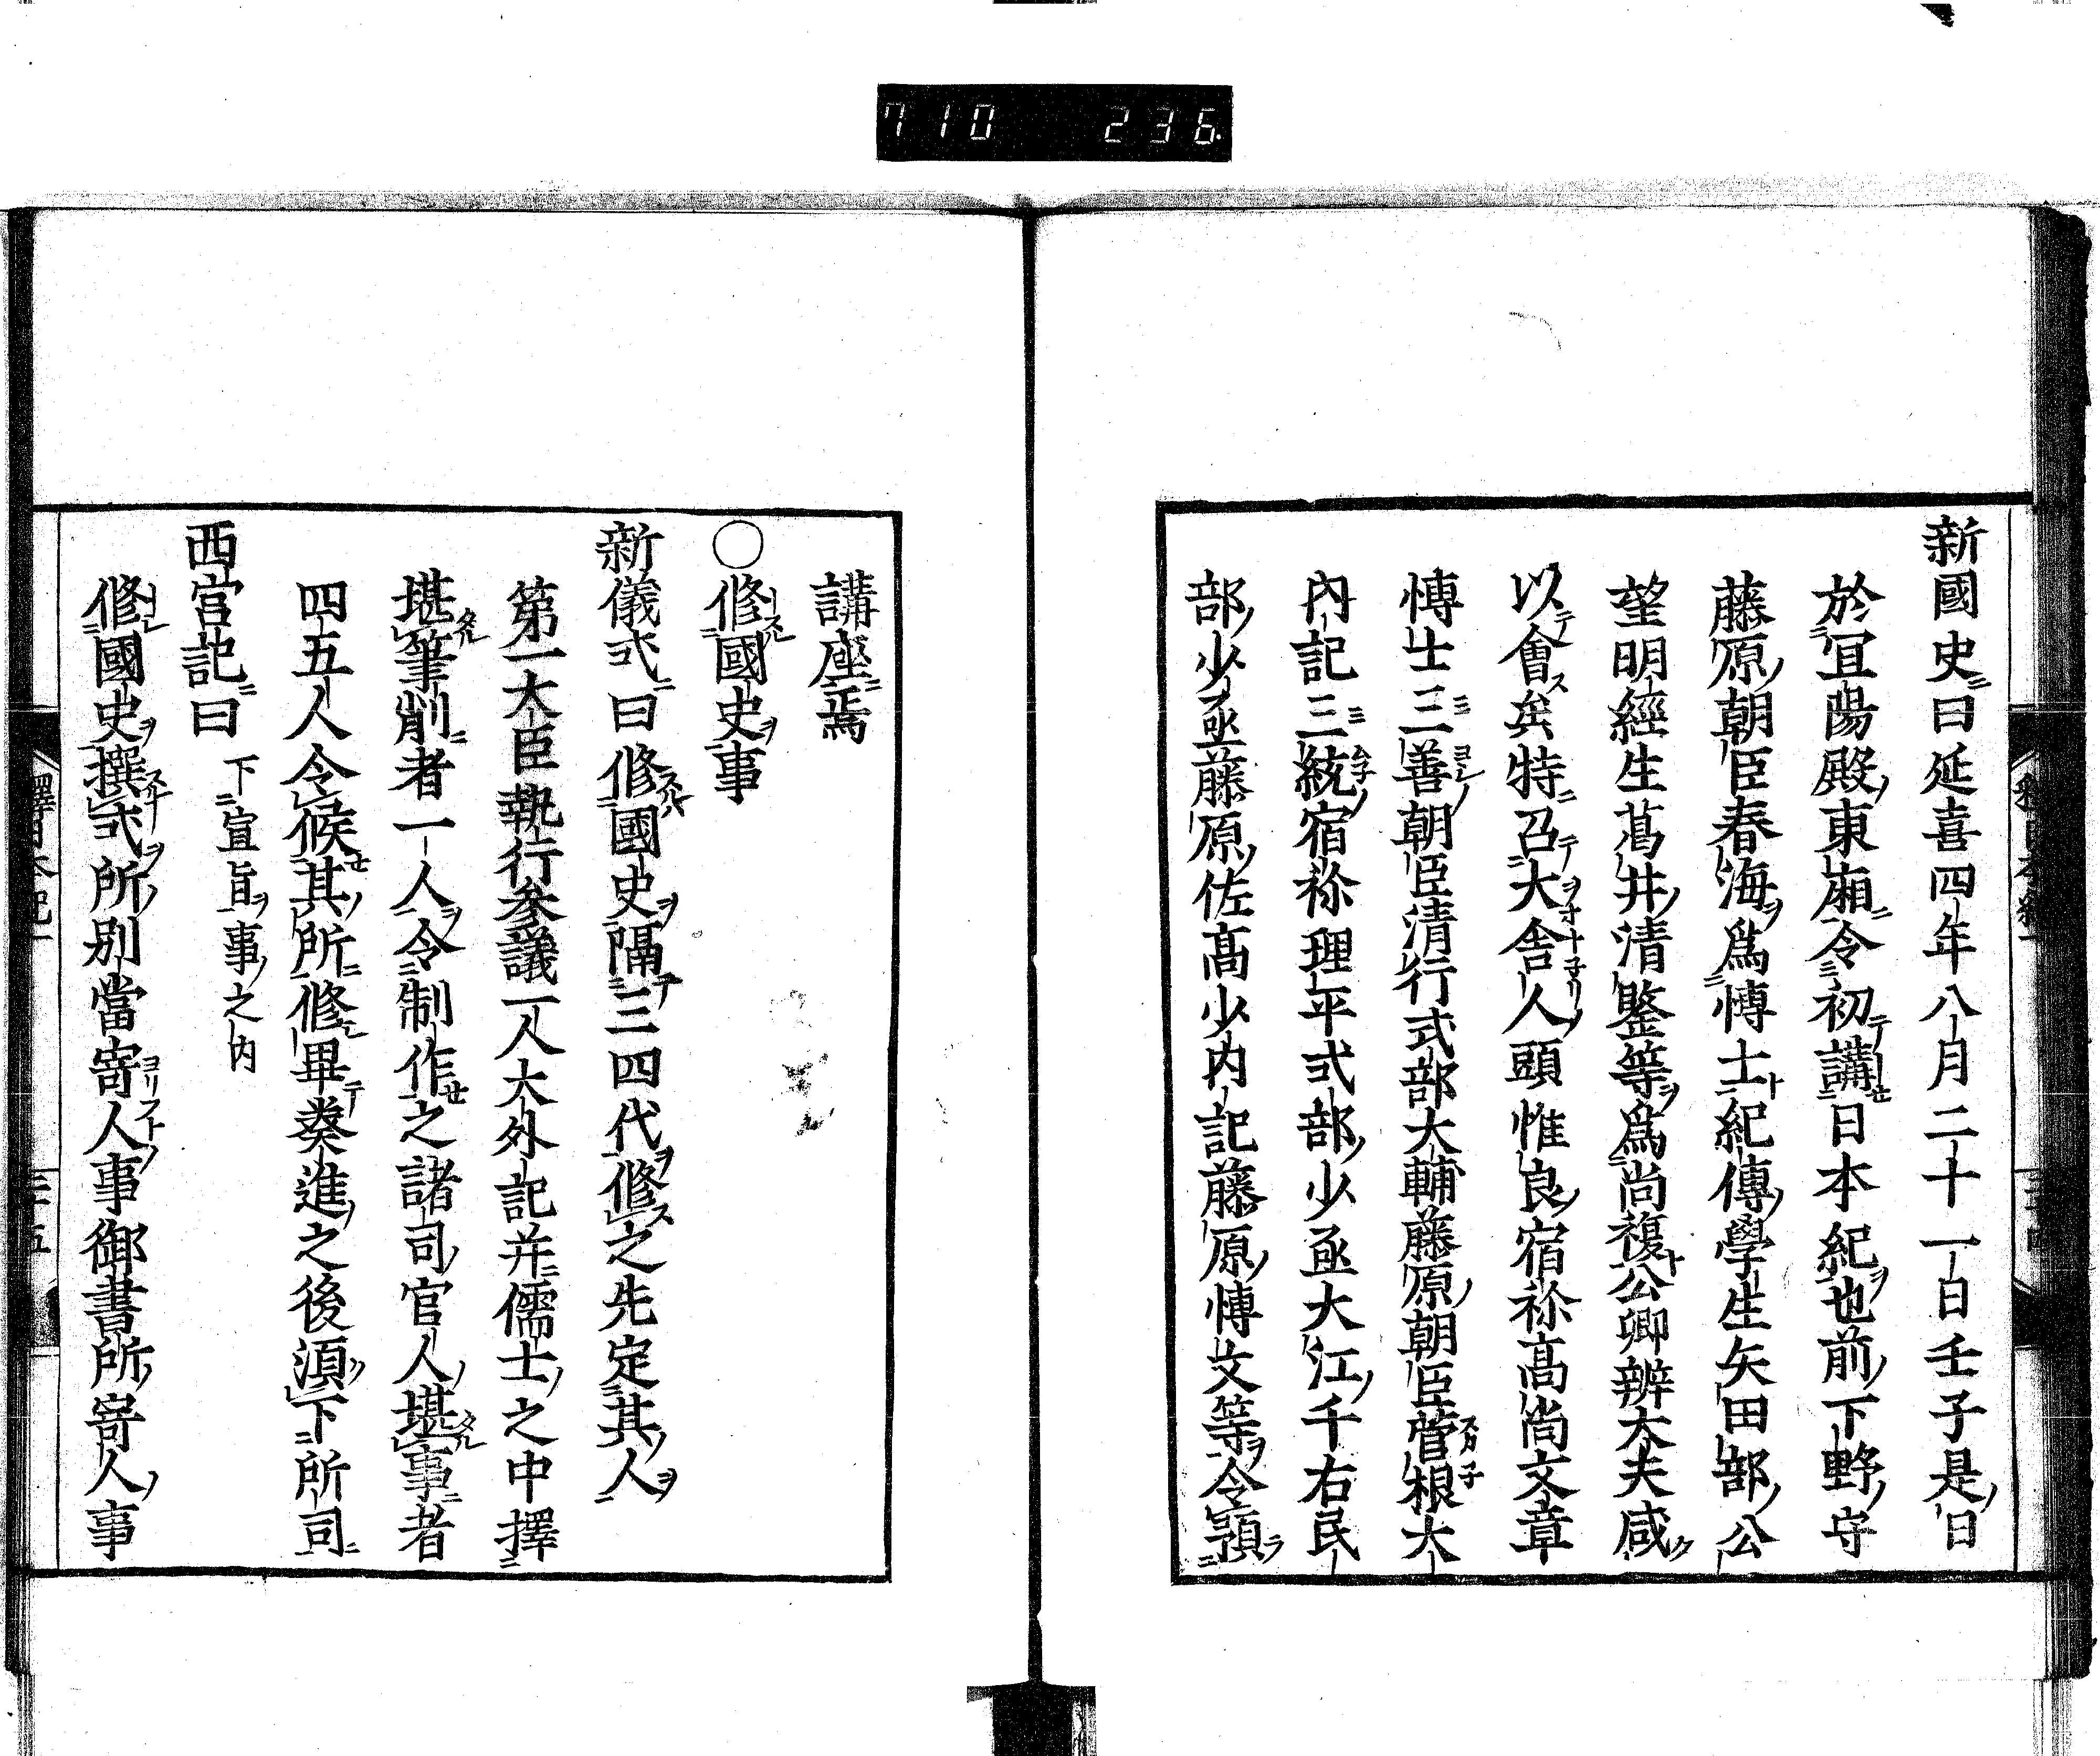 710 236
新國史曰延喜四年八月二十一日壬子是日
於宜陽殿東廂令初講日本紀也前下野守
藤原朝臣春海爲愽士紀傳學生矢田部公
望明經生葛井清鑒等爲尚複公卿辨大夫咸
以會矣特召大舎人頭惟良宿祢高尚文章
愽士三善朝臣清行式部大輔藤原朝臣菅根大
內記三統宿祢理平式部少丞大江千右民
部少丞藤原佐高少内記藤原愽文等令預
講座焉
○修國史事
新儀式曰修國史隔三四代修之先定其人
第一大臣執行参議一人大外記并儒士之中擇
堪筆削者一人令制作之諸司官人堪事者
四五人令候其所修畢奏進之後湏下所司
西宮記曰 下宣旨事之内
修國史撰式所別當寄人事御書所寄人事